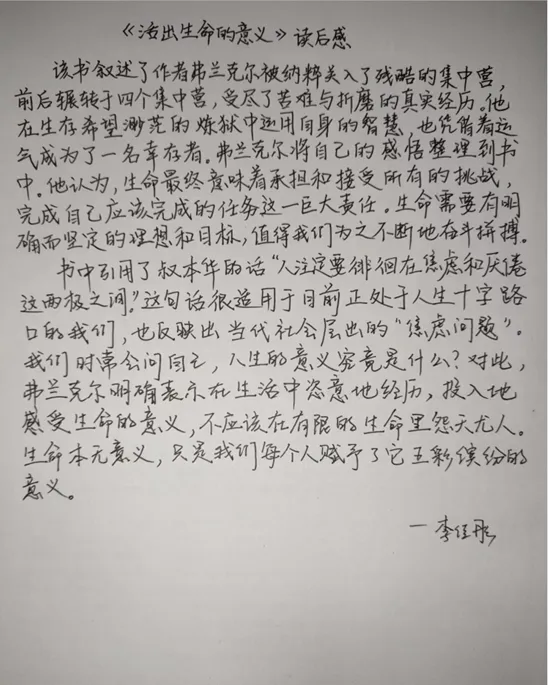 《活出生命的意义》读后感
该书叙述了作者弗兰克尔被纳粹关入了残酷的集中营，
前后辗转于四个集中营，受尽了苦难与折磨的真实经历。他
在生存希望渺茫的炼狱中运用自身的智慧，也凭借着运
气成为了一名幸存者。弗兰克尔将自己的感悟整理到书
中。他认为，生命最终意味着承担和接受所有的挑战，
完成自己应该完成的任务这一巨大责任。生命需要有明
确而坚定的理想和目标，值得我们为之不断地奋斗拼搏。
书中引用了叔本华的话“人注定要徘徊在焦虑和厌倦
这两极之间。”这句话很适用于目前正处于人生十字路
口的我们，也反映出当代社会层出的“焦虑问题”。
我们时常会问自己，人生的意义究竟是什么？对此，
弗兰克尔明确表示在生活中恣意地经历，投入地
感受生命的意义，不应该在有限的生命里怨天尤人。
生命本无意义，只是我们每个人赋予了它五彩缤纷的
意义。
一李佳彤